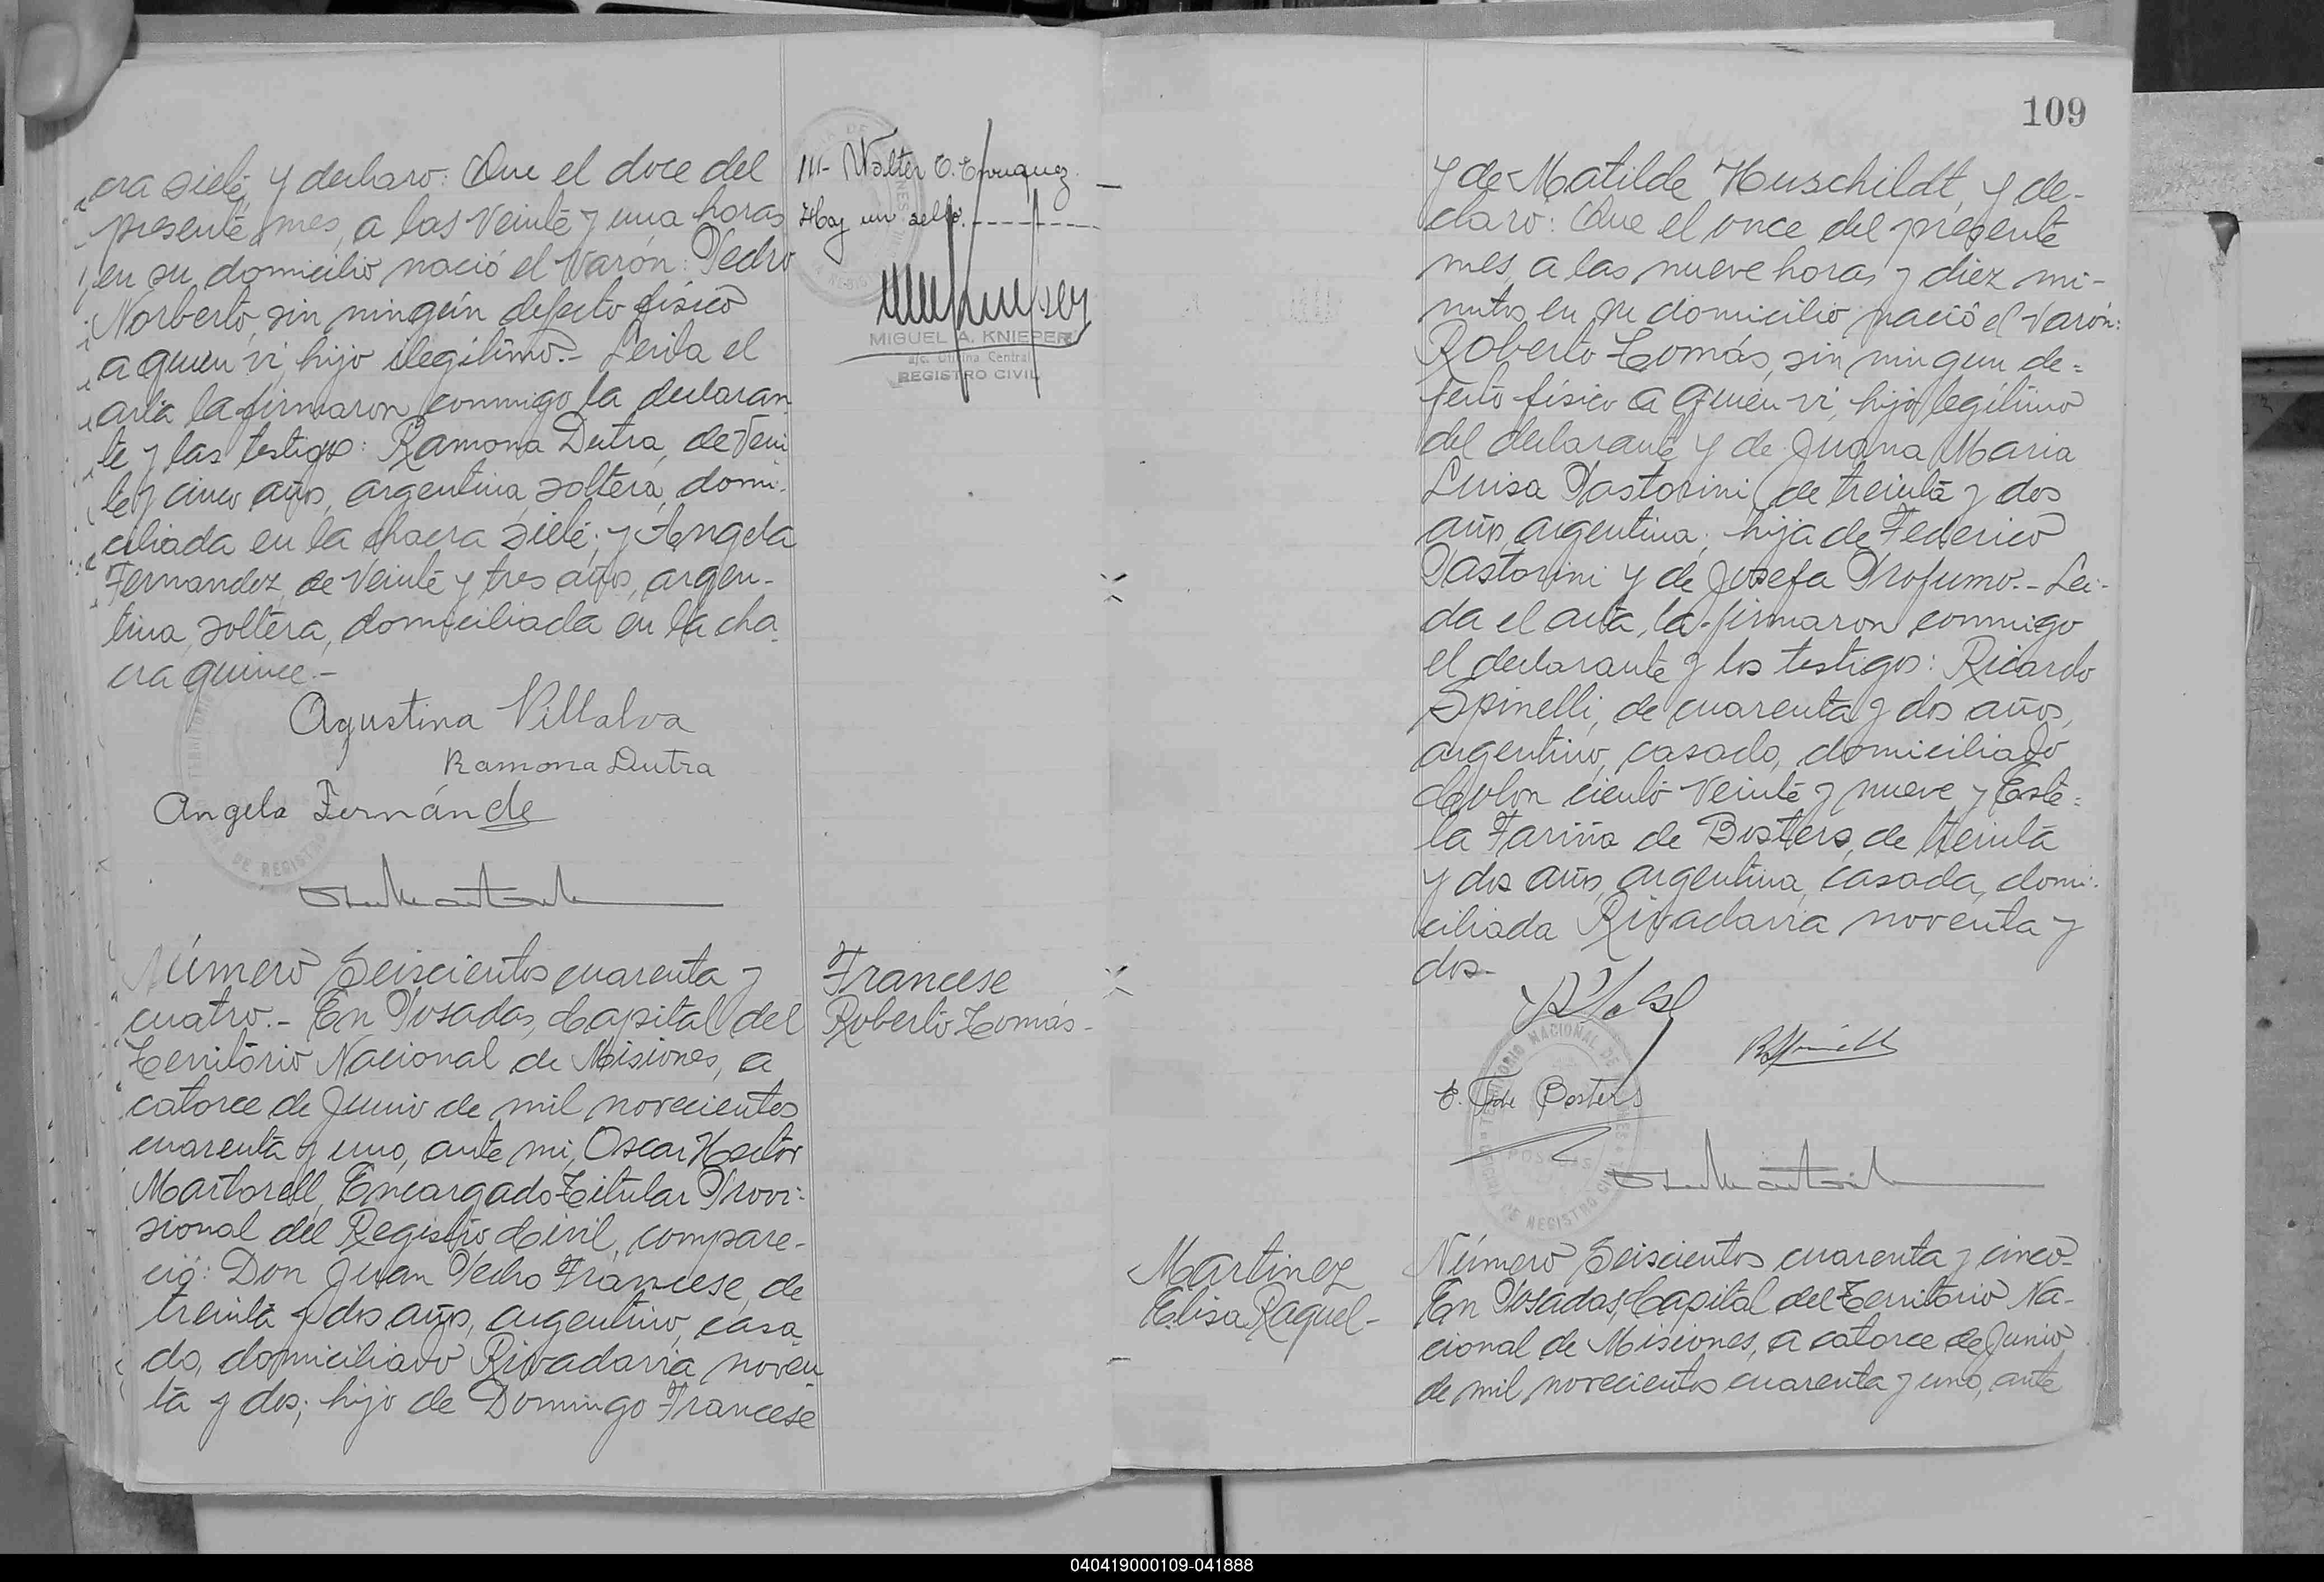 cra siete, y declaro: Que el doce del
presente mes, a las veinte y una horas
en su domicilio nació el varón: Pedro
Norberto, sin ningún defecto físico
a quien vi, hijo ilegítimo.- Leida el
acta la firmaron conmigo la declaran
te y las testigos: Ramona Dutra, de vein
te y cinco años, argentina, soltera, domi-
ciliada en la chacra siete; y Angela
Fernandez, de veinte y tres años, argen-
tina, soltera, domiciliada en la cha-
cra quince.-
Agustina Villalva
Ramona Dutra
Angela Fernánde
Número Seiscientos cuarenta y
cuatro.- En Posadas, Capital del
Territorio Nacional de Misiones, a
catorce de Junio de mil novecientos
cuarenta y uno, ante mi, Oscar Hector
Martorell, Encargado Titular Provi-
sional del Registro Civil, compare-
ció: Don Juan Pedro Francese, de
treinta y dos años, argentino, casa
do, domiciliado Rivadavia noven
ta y dos; hijo de Domingo Francese
///- Walter
Hay un sello.
MIGUEL A. KNIEPER
a/c. Oficina Central
REGISTRO CIVIL
Francese
Roberto Tomás-
109
y de Matilde Huschildt, y de-
claro: Que el once del presente
mes, a las nueve horas y diez mi-
nutos, en su domicilio nació el varón:
Roberto Tomás, sin ningun de-
fecto físico a quien vi, hijo legítimo
del declarante y de Juana Maria
Luisa Pastorini, de treinta y dos
años, argentina; hija de Federico
Pastorini y de Josefa Profumo.- Lei-
da el acta, la firmaron conmigo
el declarante y los testigos: Ricardo
Spinelli, de cuarenta y dos años,
argentino, casado, domiciliado
Colon ciento veinte y nueve y Este-
la Fariña de Bosters, de treinta
y dos años, argentina, casada, domi-
ciliada Rivadavia noventa y
dos-
E. F. de Bosters
TERRITORIO NACIONAL DE
POSADAS
DE REGISTRO CIVIL
Martinez
Elisa Raquel-
Número Seiscientos cuarenta y cinco-
En Posadas, Capital del Territorio Na-
cional de Misiones, a catorce de Junio
de mil novecientos cuarenta y uno, ante
040419000109-041888